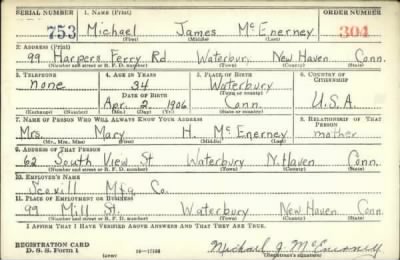 SERIAL NUMBER 1. NAME (Print) ORDER NUMBER
753 Michael James McEnerney 304
(First) (Middle) (Last)
2. ADDRESS (Print)
99 Harpers Ferry Rd Waterbury New Haven Conn.
(Number and street or R. F. D. number) (Town) (County) (State)
3. TELEPHONE 4. AGE IN YEARS 5. PLACE OF BIRTH 6. COUNTRY OF CITIZENSHIP
none 34 Waterbury
DATE OF BIRTH (Town or county)
Apr. 2, 1906 Conn. U.S.A.
(Exchange) (Number) (Mo.) (Day) (Yr.) (State or country)
7. NAME OF PERSON WHO WILL ALWAYS KNOW YOUR ADDRESS 8. RELATIONSHIP OF THAT PERSON
Mrs. Mary H. McEnerney mother
(Mr., Mrs., Miss) (First) (Middle) (Last)
9. ADDRESS OF THAT PERSON
62 South View St Waterbury N. Haven Conn.
(Number and street or R. F. D. number) (Town) (County) (State)
10. EMPLOYER'S NAME
Scovill Mfg Co.
11. PLACE OF EMPLOYMENT OR BUSINESS
99 Mill St. Waterbury New Haven Conn.
(Number and street or R. F. D. number) (Town) (County) (State)
I AFFIRM THAT I HAVE VERIFIED ABOVE ANSWERS AND THAT THEY ARE TRUE.
REGISTRATION CARD
D. S. S. Form 1 Michael J McEnerney
(Registrant's signature)